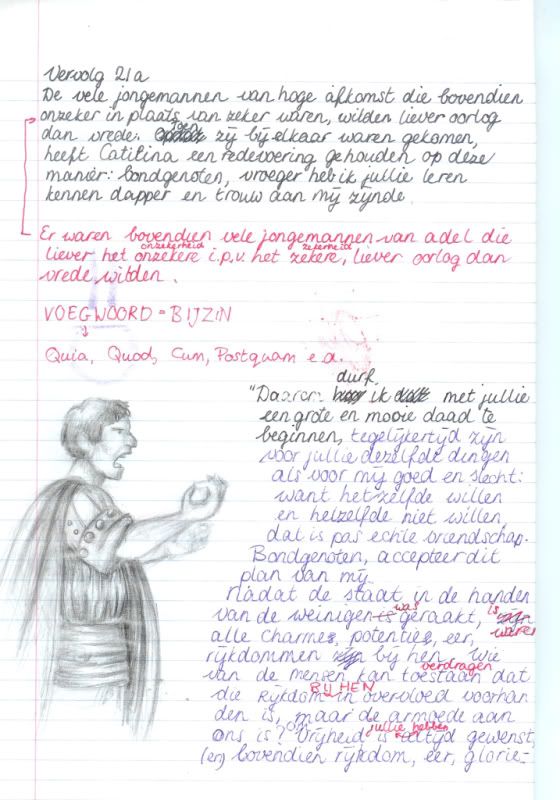 Vervolg 21a
De vele jongemannen van hoge afkomst die bovendien
onzeker in plaats van zeker waren, wilden liever oorlog
dan vrede. Toen zij bij elkaar waren gekomen,
heeft Catilina een redevoering gehouden op deze
manier: bondgenoten, vroeger heb ik jullie leren
kennen dapper en trouw aan mij zijnde.
Er waren bovendien vele jongemannen van adel die
onzekerheid zekerheid
liever het onzekere i.p.v. het zekere, liever oorlog dan
vrede wilden.
VOEGWOORD = BIJZIN
Quia, Quod, Cum, Postquam e.a.
durf,
"Daarom ik met jullie
een grote en mooie daad te
beginnen, tegelijkertijd zijn
voor jullie dezelfde dingen
als voor mij goed en slecht:
want hetzelfde willen
en hetzelfde niet willen,
dat is pas echte vriendschap.
Bondgenoten, accepteer dit
plan van mij.
Nadat de staat in de handen
was is
van de weinigen is geraakt, zijn
alle charmes, potenties, eer, waren
rijkdommen zijn bij hen. Wie
verdragen
van de mensen kan toestaan dat
BIJ HEN
die rijkdom in overvloed voorhan
den is, maar de armoede aan
jullie hebben
ons is? Vrijheid is altijd gewenst,
(en) bovendien rijkdom, eer, glorie-